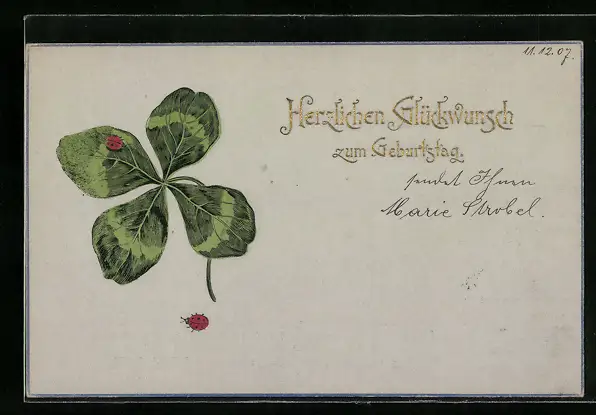 11.12.07.
Herzlichen Glückwunsch
zum Geburtstag.
sendet Ihnen
Marie Strobel.